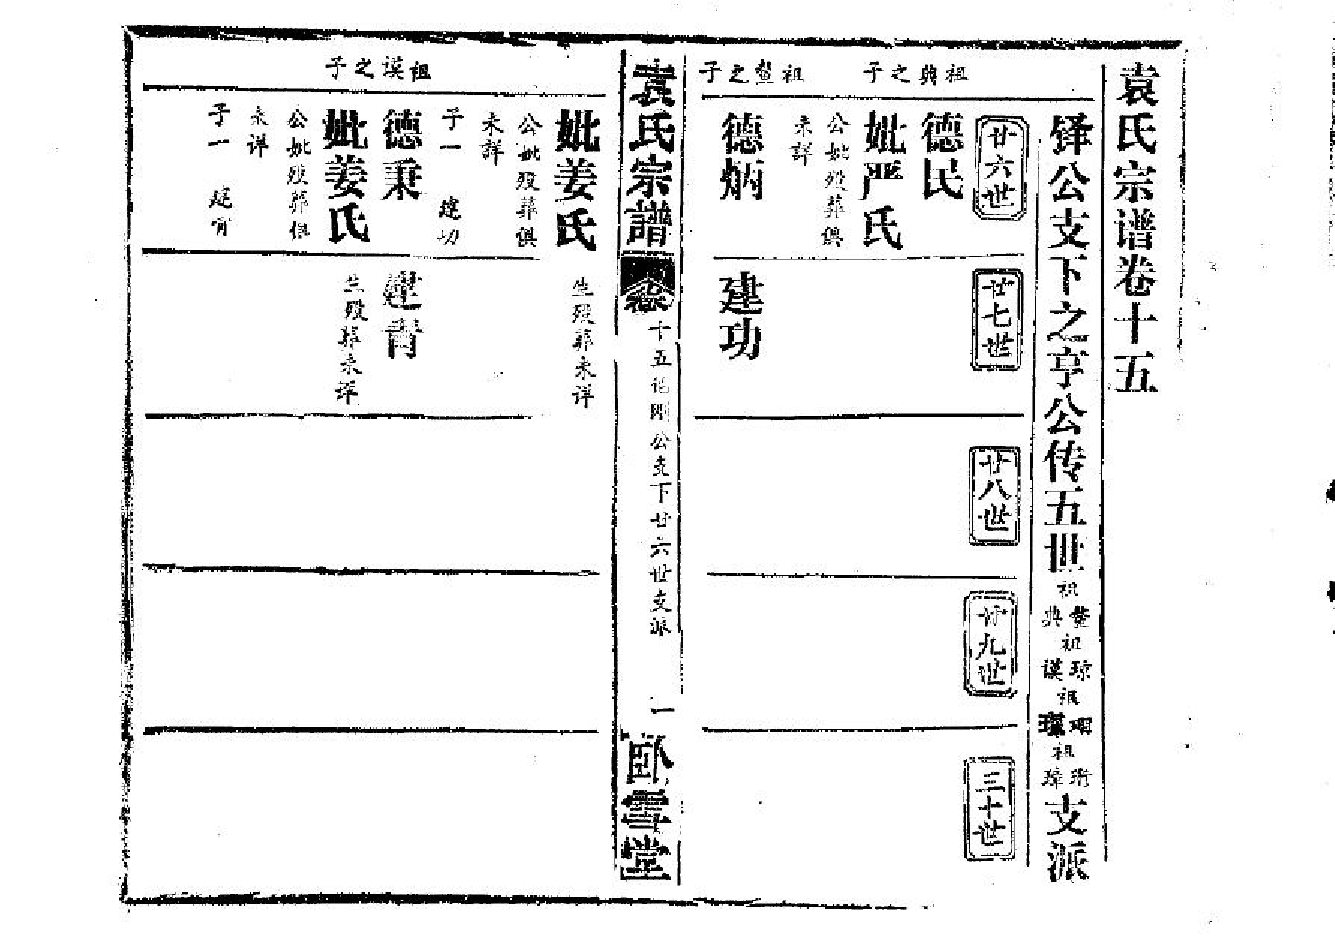 袁氏宗谱卷十五
铎公支下之亨公传五世
支派
廿六世
廿七世
廿八世
廿九世
三十世
祖典之子
德民
妣严氏
公妣殁葬俱
未詳
祖鳌之子
德炳
建功
袁氏宗譜
卷十五
剛公支下廿六世支派
一
卧雪堂
妣姜氏
生殁葬未详
公妣殁葬俱
未詳
子一 建功
祖漢之子
德秉
建青
妣姜氏
生殁葬未详
公妣殁葬俱
未详
子一 建青